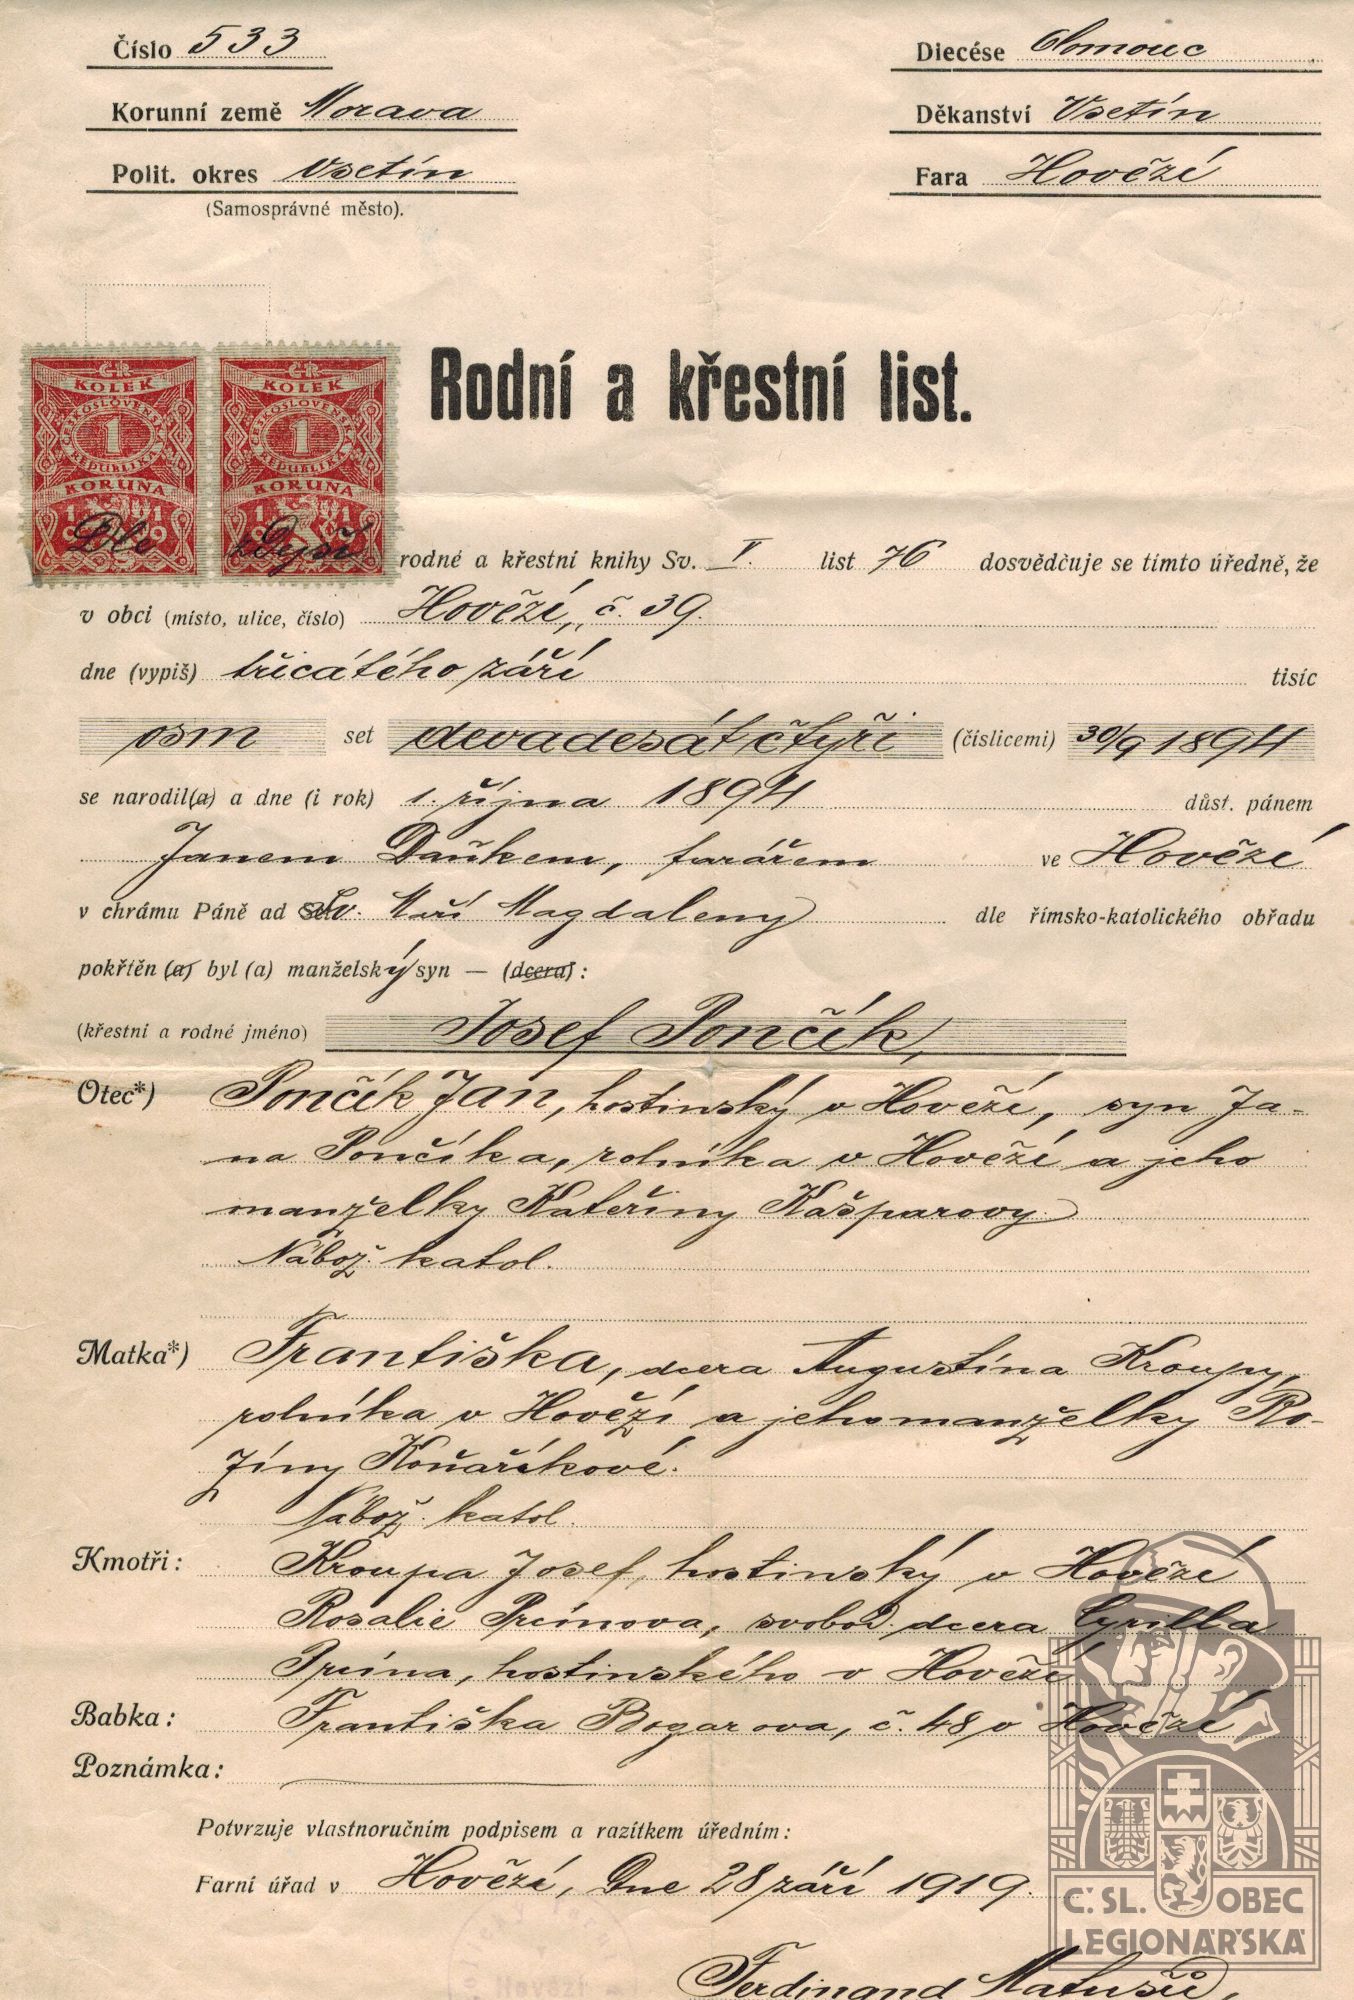 Číslo 533
Diecése Olomouc
Korunní země Morava
Děkanství Vsetín
Polit. okres Vsetín
Fara Hovězí
(Samosprávné město).
ČR ČR
KOLEK KOLEK
ČESKOSLOVENSKÁ ČESKOSLOVENSKÁ
1 1
REPUBLIKA REPUBLIKA
KORUNA KORUNA
1919 1919
Rodní a křestní list.
Dle zdejší rodné a křestní knihy Sv. V. list 76 dosvědčuje se tímto úředně, že
v obci (místo, ulice, číslo) Hovězí, č. 39.
dne (vypiš) třicátého září tisíc
osm set devadesát čtyři (číslicemi) 30/9 1894
se narodil(a) a dne (i rok) 1. října 1894 důst. pánem
Janem Daňkem, farářem ve Hovězí
v chrámu Páně ad Sv. Maří Magdaleny dle římsko-katolického obřadu
pokřtěn (a) byl (a) manželský syn — (dcera):
(křestní a rodné jméno) Josef Pončík,
Otec*) Pončík Jan, hostinský v Hovězí, syn Ja-
na Pončíka, rolníka v Hovězí a jeho
manželky Kateřiny Kašparovy.
Nábož. katol.
Matka*) Františka, dcera Augustína Kroupy,
rolníka v Hovězí a jeho manželky Ro-
zíny Koňaříkové.
Nábož. katol.
Kmotři: Kroupa Josef, hostinský v Hovězí
Rosalie Prcínova, svobod. dcera Cyrilla
Prcína, hostinského v Hovězí
Babka: Františka Bogarova, č. 48 v Hovězí
Poznámka:
Potvrzuje vlastnoručním podpisem a razítkem úředním:
Farní úřad v Hovězí, Dne 28 září 1919.
Hovězí
Ferdinand Matušů,
Č. SL. OBEC
LEGIONÁŘSKÁ